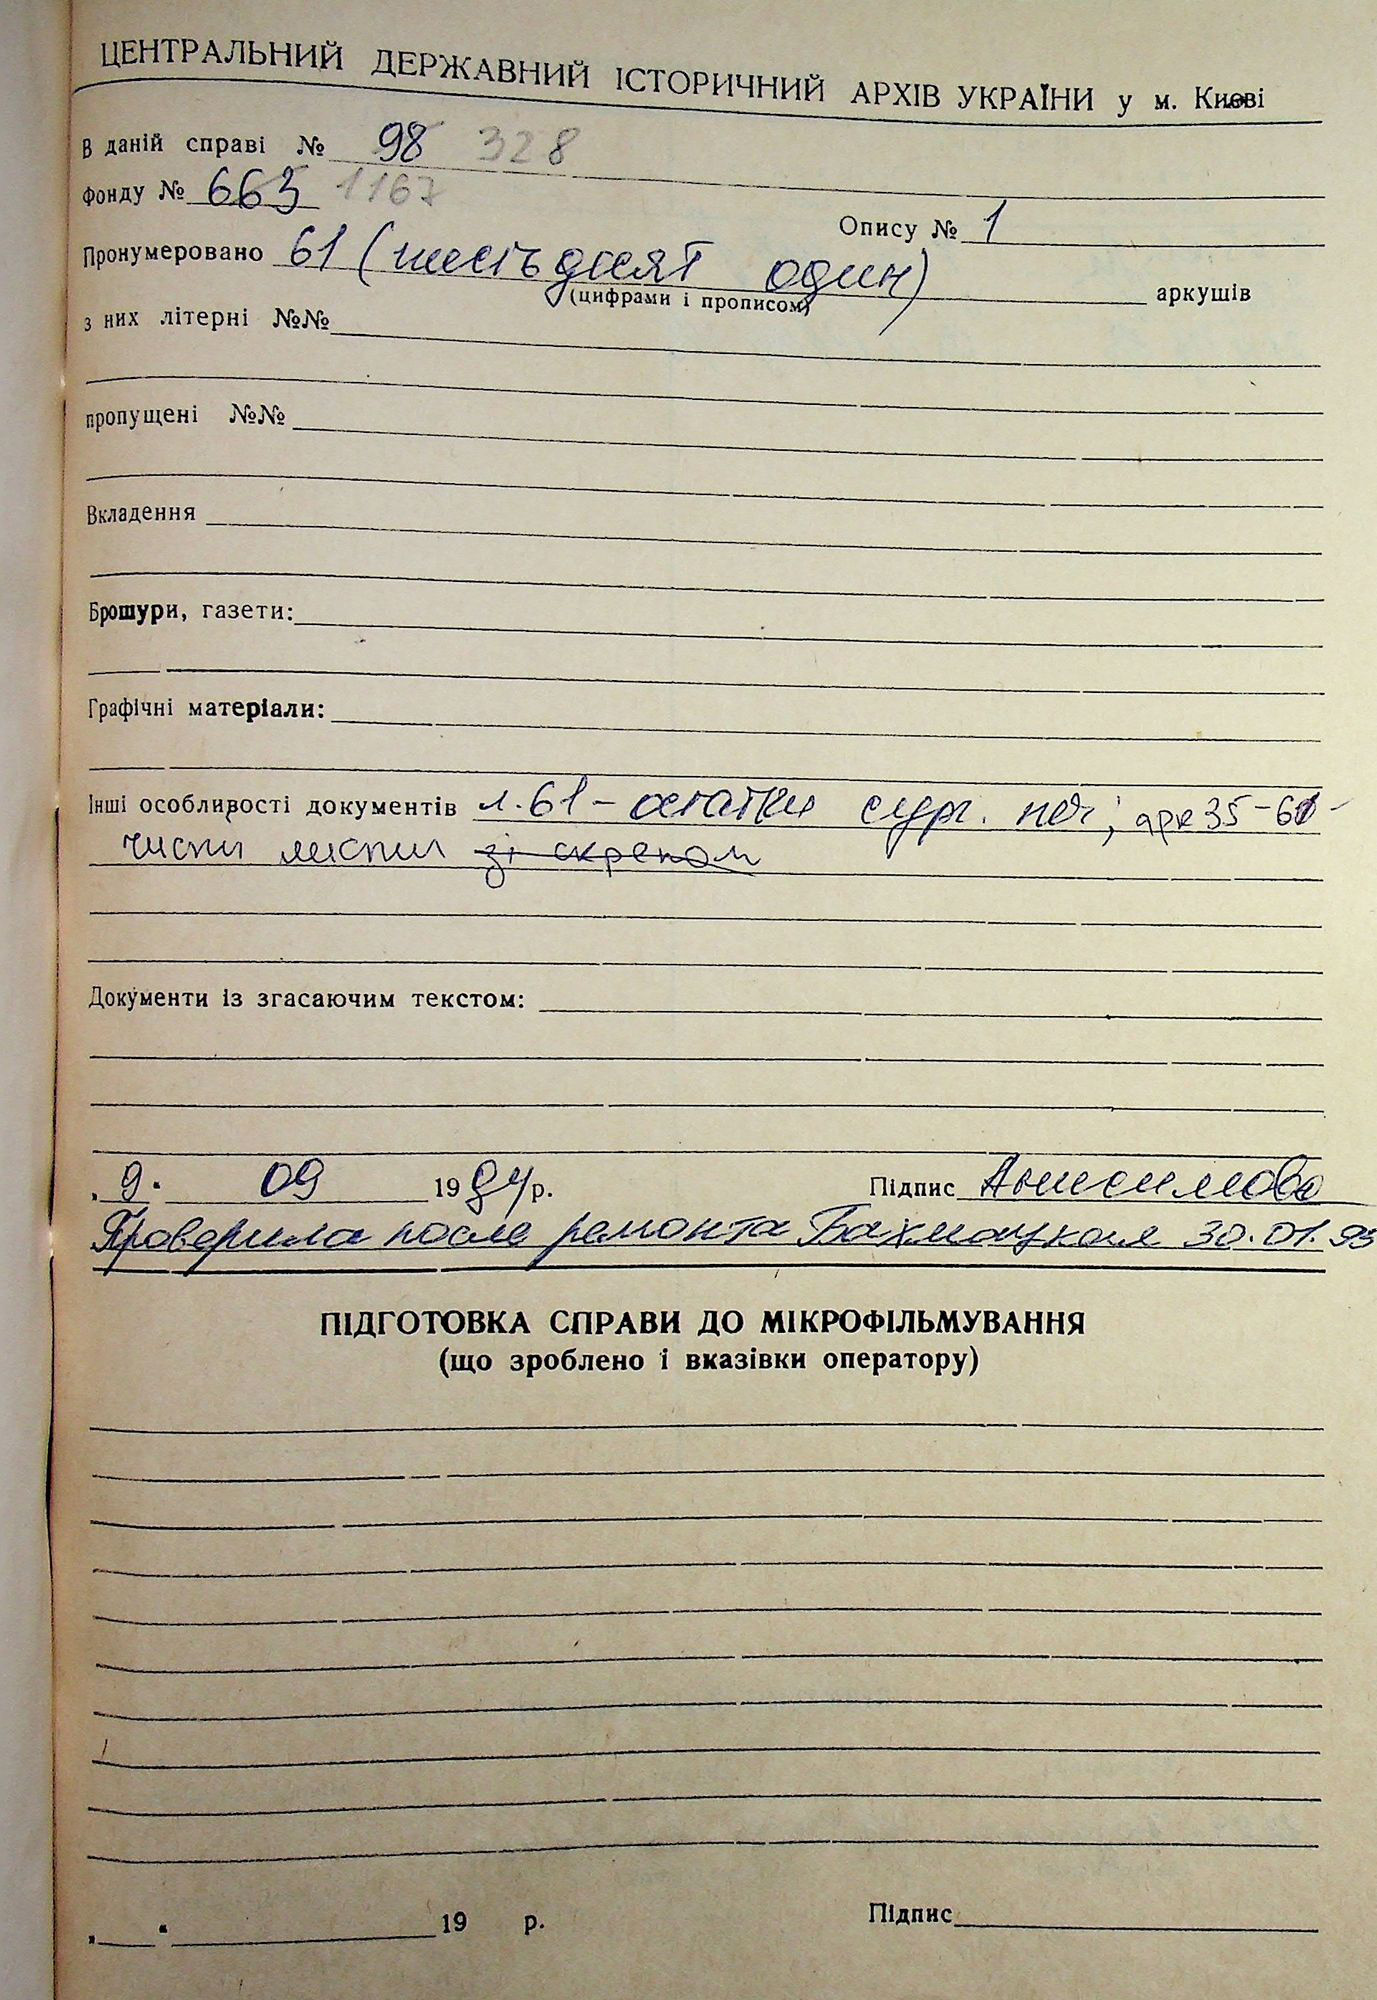 ЦЕНТРАЛЬНИЙ ДЕРЖАВНИЙ ІСТОРИЧНИЙ АРХІВ УКРАЇНИ у м. Києві
В даній справі № 98 328
Фонду № 663 1167
Опису № 1
Пронумеровано 61 (шістьдесят один) аркушів
(цифрами і прописом)
з них літерні №№
пропущені №№
Вкладення
Брошури, газети:
Графічні матеріали:
Інші особливості документів л. 61 – остатки сург. печ; арк 35-61-
чисти листи зі скрепом
Документи із згасаючим текстом:
„ 9. 09 1994 р. Підпис Анисимова
Проверила после ремонта Бахмацкая 30.01.95
ПІДГОТОВКА СПРАВИ ДО МІКРОФІЛЬМУВАННЯ
(що зроблено і вказівки оператору)
„ “ 19 р. Підпис